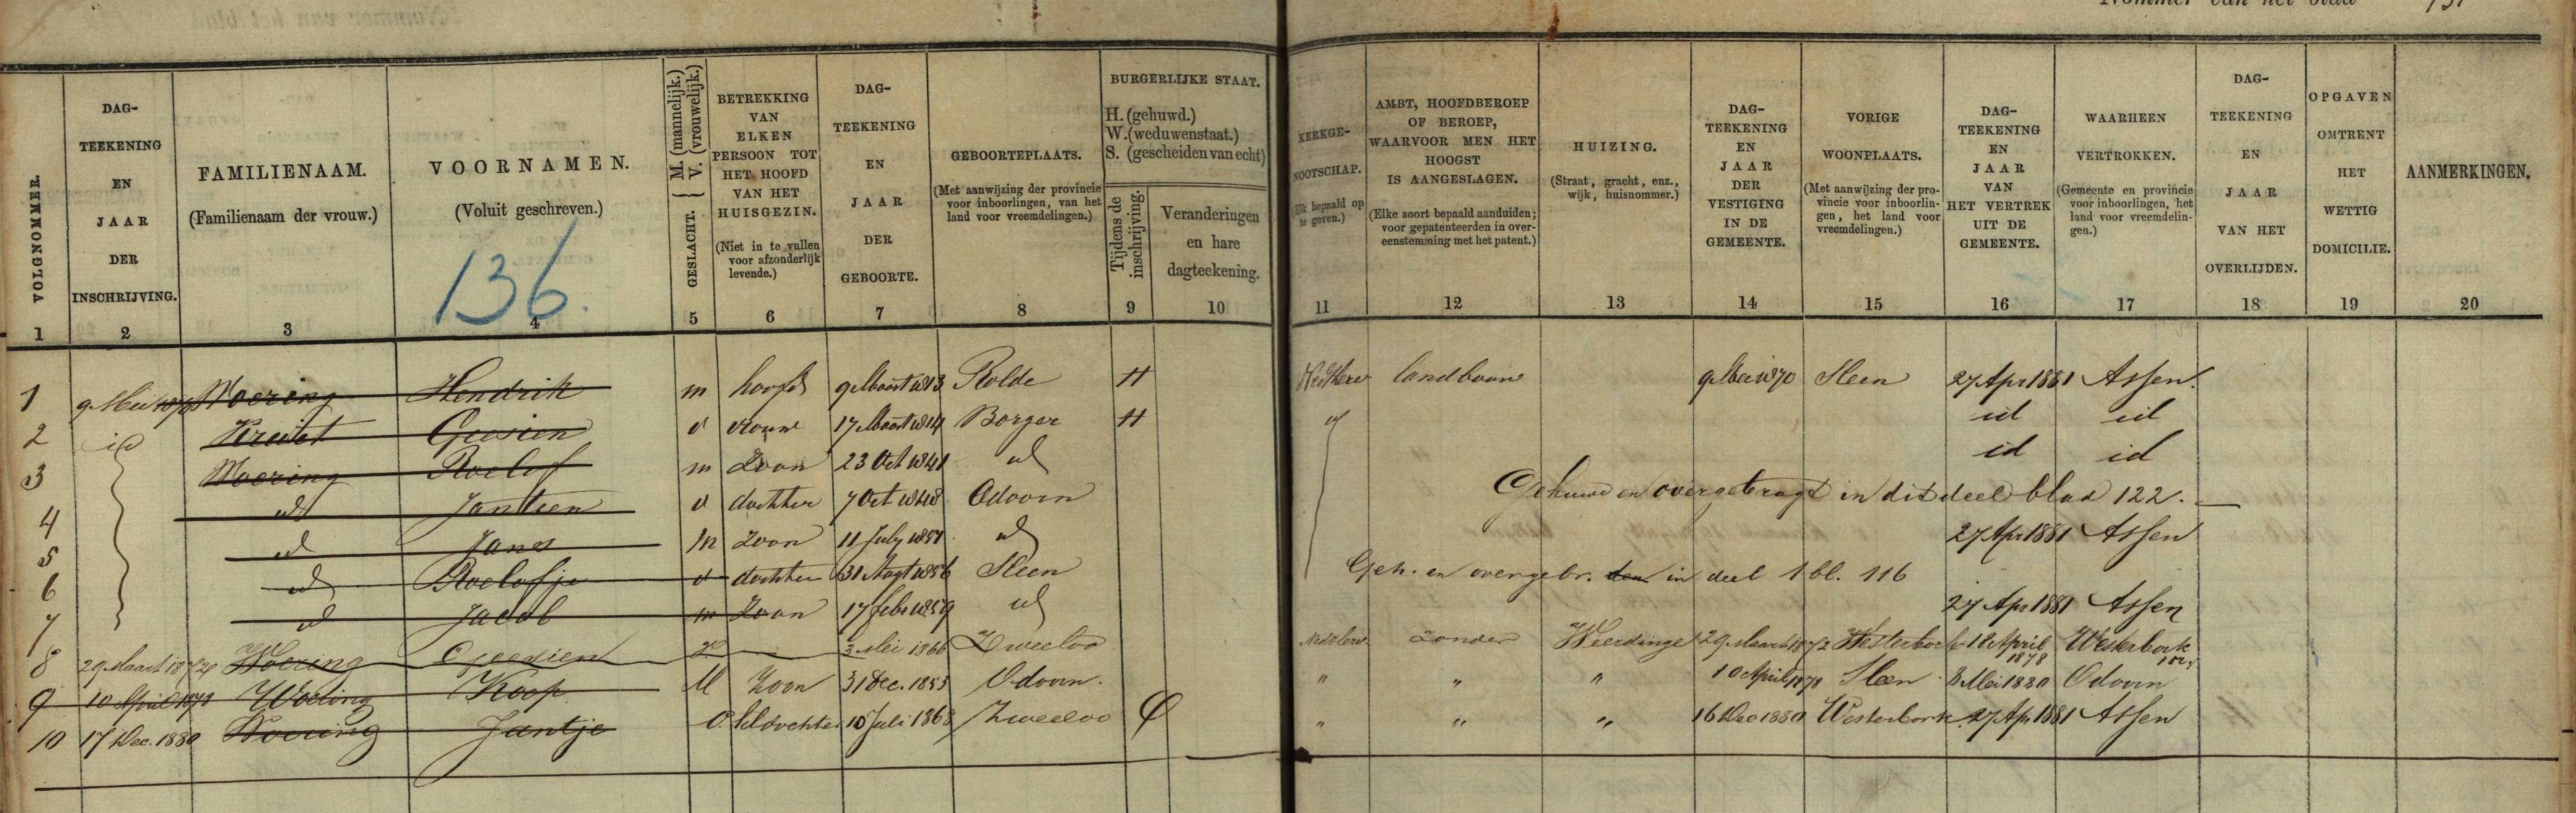 Nommer van het blad 131
VOLGNOMMER.
DAG-TEEKENING EN JAAR DER INSCHRIJVING.
FAMILIENAAM.
(Familienaam der vrouw.)
VOORNAMEN.
(Voluit geschreven.)
136.
GESLACHT. { M. (mannelijk.) V. (vrouwelijk.)
BETREKKING VAN ELKEN PERSOON TOT HET HOOFD VAN HET HUISGEZIN.
(Niet in te vullen voor afzonderlijk levende.)
DAG-TEEKENING EN JAAR DER GEBOORTE.
GEBOORTEPLAATS.
(Met aanwijzing der provincie voor inboorlingen, van het land voor vreemdelingen.)
BURGERLIJKE STAAT.
H. (gehuwd.)
W. (weduwenstaat.)
S. (gescheiden van echt)
Tijdens de inschrijving.
Veranderingen en hare dagteekening.
KERKGE-NOOTSCHAP.
(Elk bepaald op te geven.)
AMBT, HOOFDBEROEP OF BEROEP, WAARVOOR MEN HET HOOGST IS AANGESLAGEN.
(Elke soort bepaald aanduiden; voor gepatenteerden in over-eenstemming met het patent.)
HUIZING.
(Straat, gracht, enz., wijk, huisnommer.)
DAG-TEEKENING EN JAAR DER VESTIGING IN DE GEMEENTE.
VORIGE WOONPLAATS.
(Met aanwijzing der pro-vincie voor inboorlin-gen, het land voor vreemdelingen.)
DAG-TEEKENING EN JAAR VAN HET VERTREK UIT DE GEMEENTE.
WAARHEEN VERTROKKEN.
(Gemeente en provincie voor inboorlingen, het land voor vreemdelin-gen.)
DAG-TEEKENING EN JAAR VAN HET OVERLIJDEN.
OPGAVEN OMTRENT HET WETTIG DOMICILIE.
AANMERKINGEN.
1 2 3 4 5 6 7 8 9 10 11 12 13 14 15 16 17 18 19 20
1 9 Mei 1870 Woering Hendrik m hoofd 9 Maart 1813 Rolde H Ned Herv landbouw 9 Mei 1870 Sleen 27 Apr 1881 Assen.
2 id Geesien v vrouw 17 Maart 1814 Borger H id id id
3 Woering Roelof m Zoon 23 Oct 1841 id id id
4 id Jantien v dochter 7 Oct 1848 Odoorn Gehuwd en overgebragt in dit deel blad 122.
5 id Jans m Zoon 11 July 1851 id 27 Apr 1881 Assen
6 id Roelofje v dochter 31 Augt 1856 Sleen Geh. en overgebr. in deel 1 bl. 116
7 id Jacob m Zoon 17 febr 1859 id 27 Apr 1881 Assen
8 29 Maart 1872 Woering Geesien V. 3 Mei 1866 Zweeloo Ned Herv. Zonder Weerdinge 29 Maart 1872 Westerbork 18 April 1878 Westerbork
9 10 April 1878 Woering Koop M Zoon 31 Dec. 1853 Odoorn. " " " 10 April 1878 Sleen 8 Mei 1880 Odoorn
10 17 Dec. 1880 Woering Jantje v. kldochter 10 Juli 1868 Zweeloo " " " 16 Dec 1880 Westerbork 27 Apr 1881 Assen